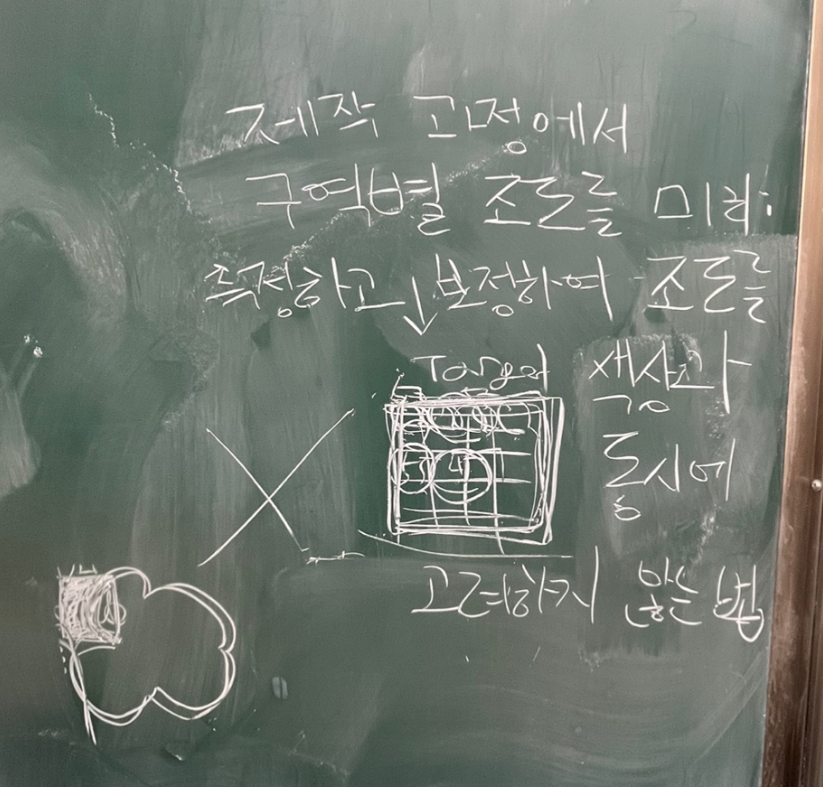 제작 과정에서
구역별 조도를 미리
측정하고 보정하여 조도를
Target
색상과
동시에
고려하지 않는 법